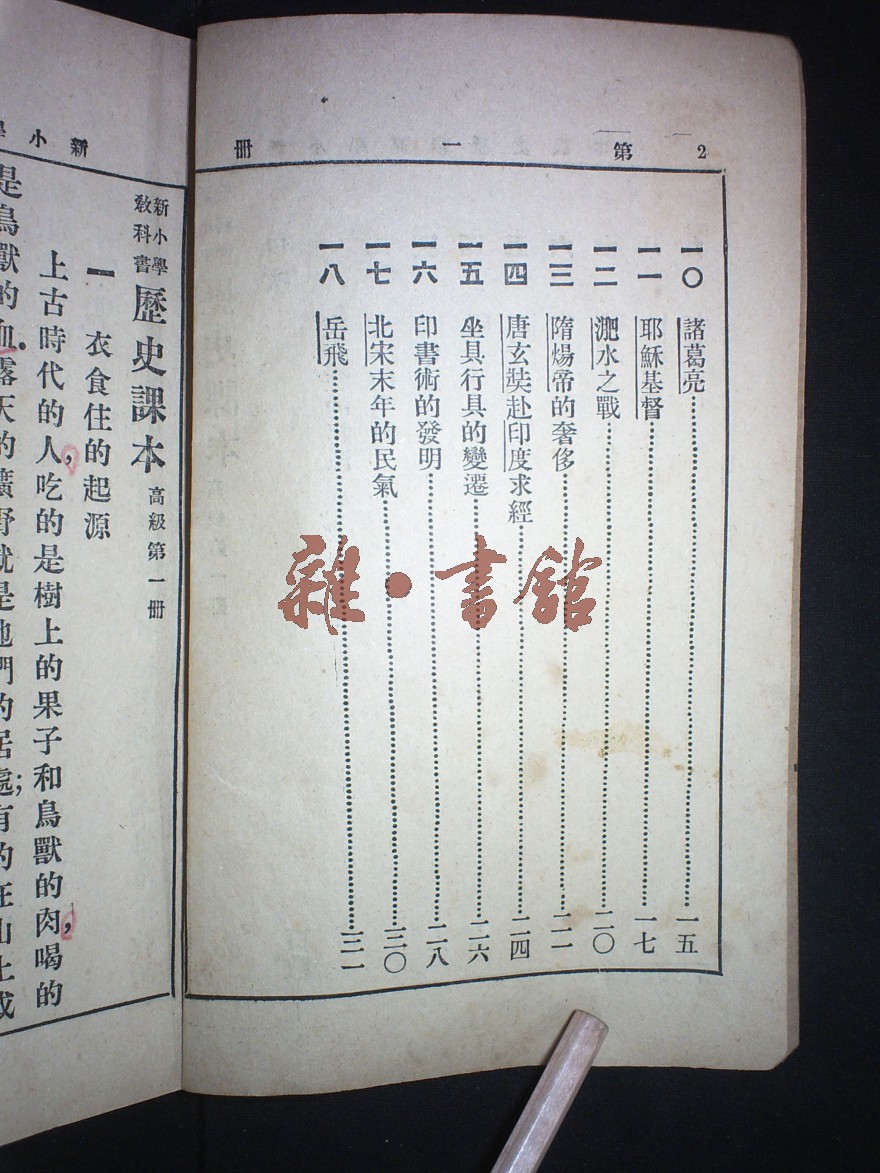 2 第一册
一〇 諸葛亮……一五
一一 耶穌基督……一七
一二 淝水之戰……二〇
一三 隋煬帝的奢侈……二一
一四 唐玄奘赴印度求經……二四
一五 坐具行具的變遷……二六
一六 印書術的發明……二八
一七 北宋末年的民氣……三〇
一八 岳飛……三一
新小學
新小學
教科書
歷史課本 高級第一册
一 衣食住的起源
上古時代的人，吃的是樹上的果子和鳥獸的肉，喝的
是鳥獸的血。露天的曠野就是他們的居處；有的在山上或
雜·書館